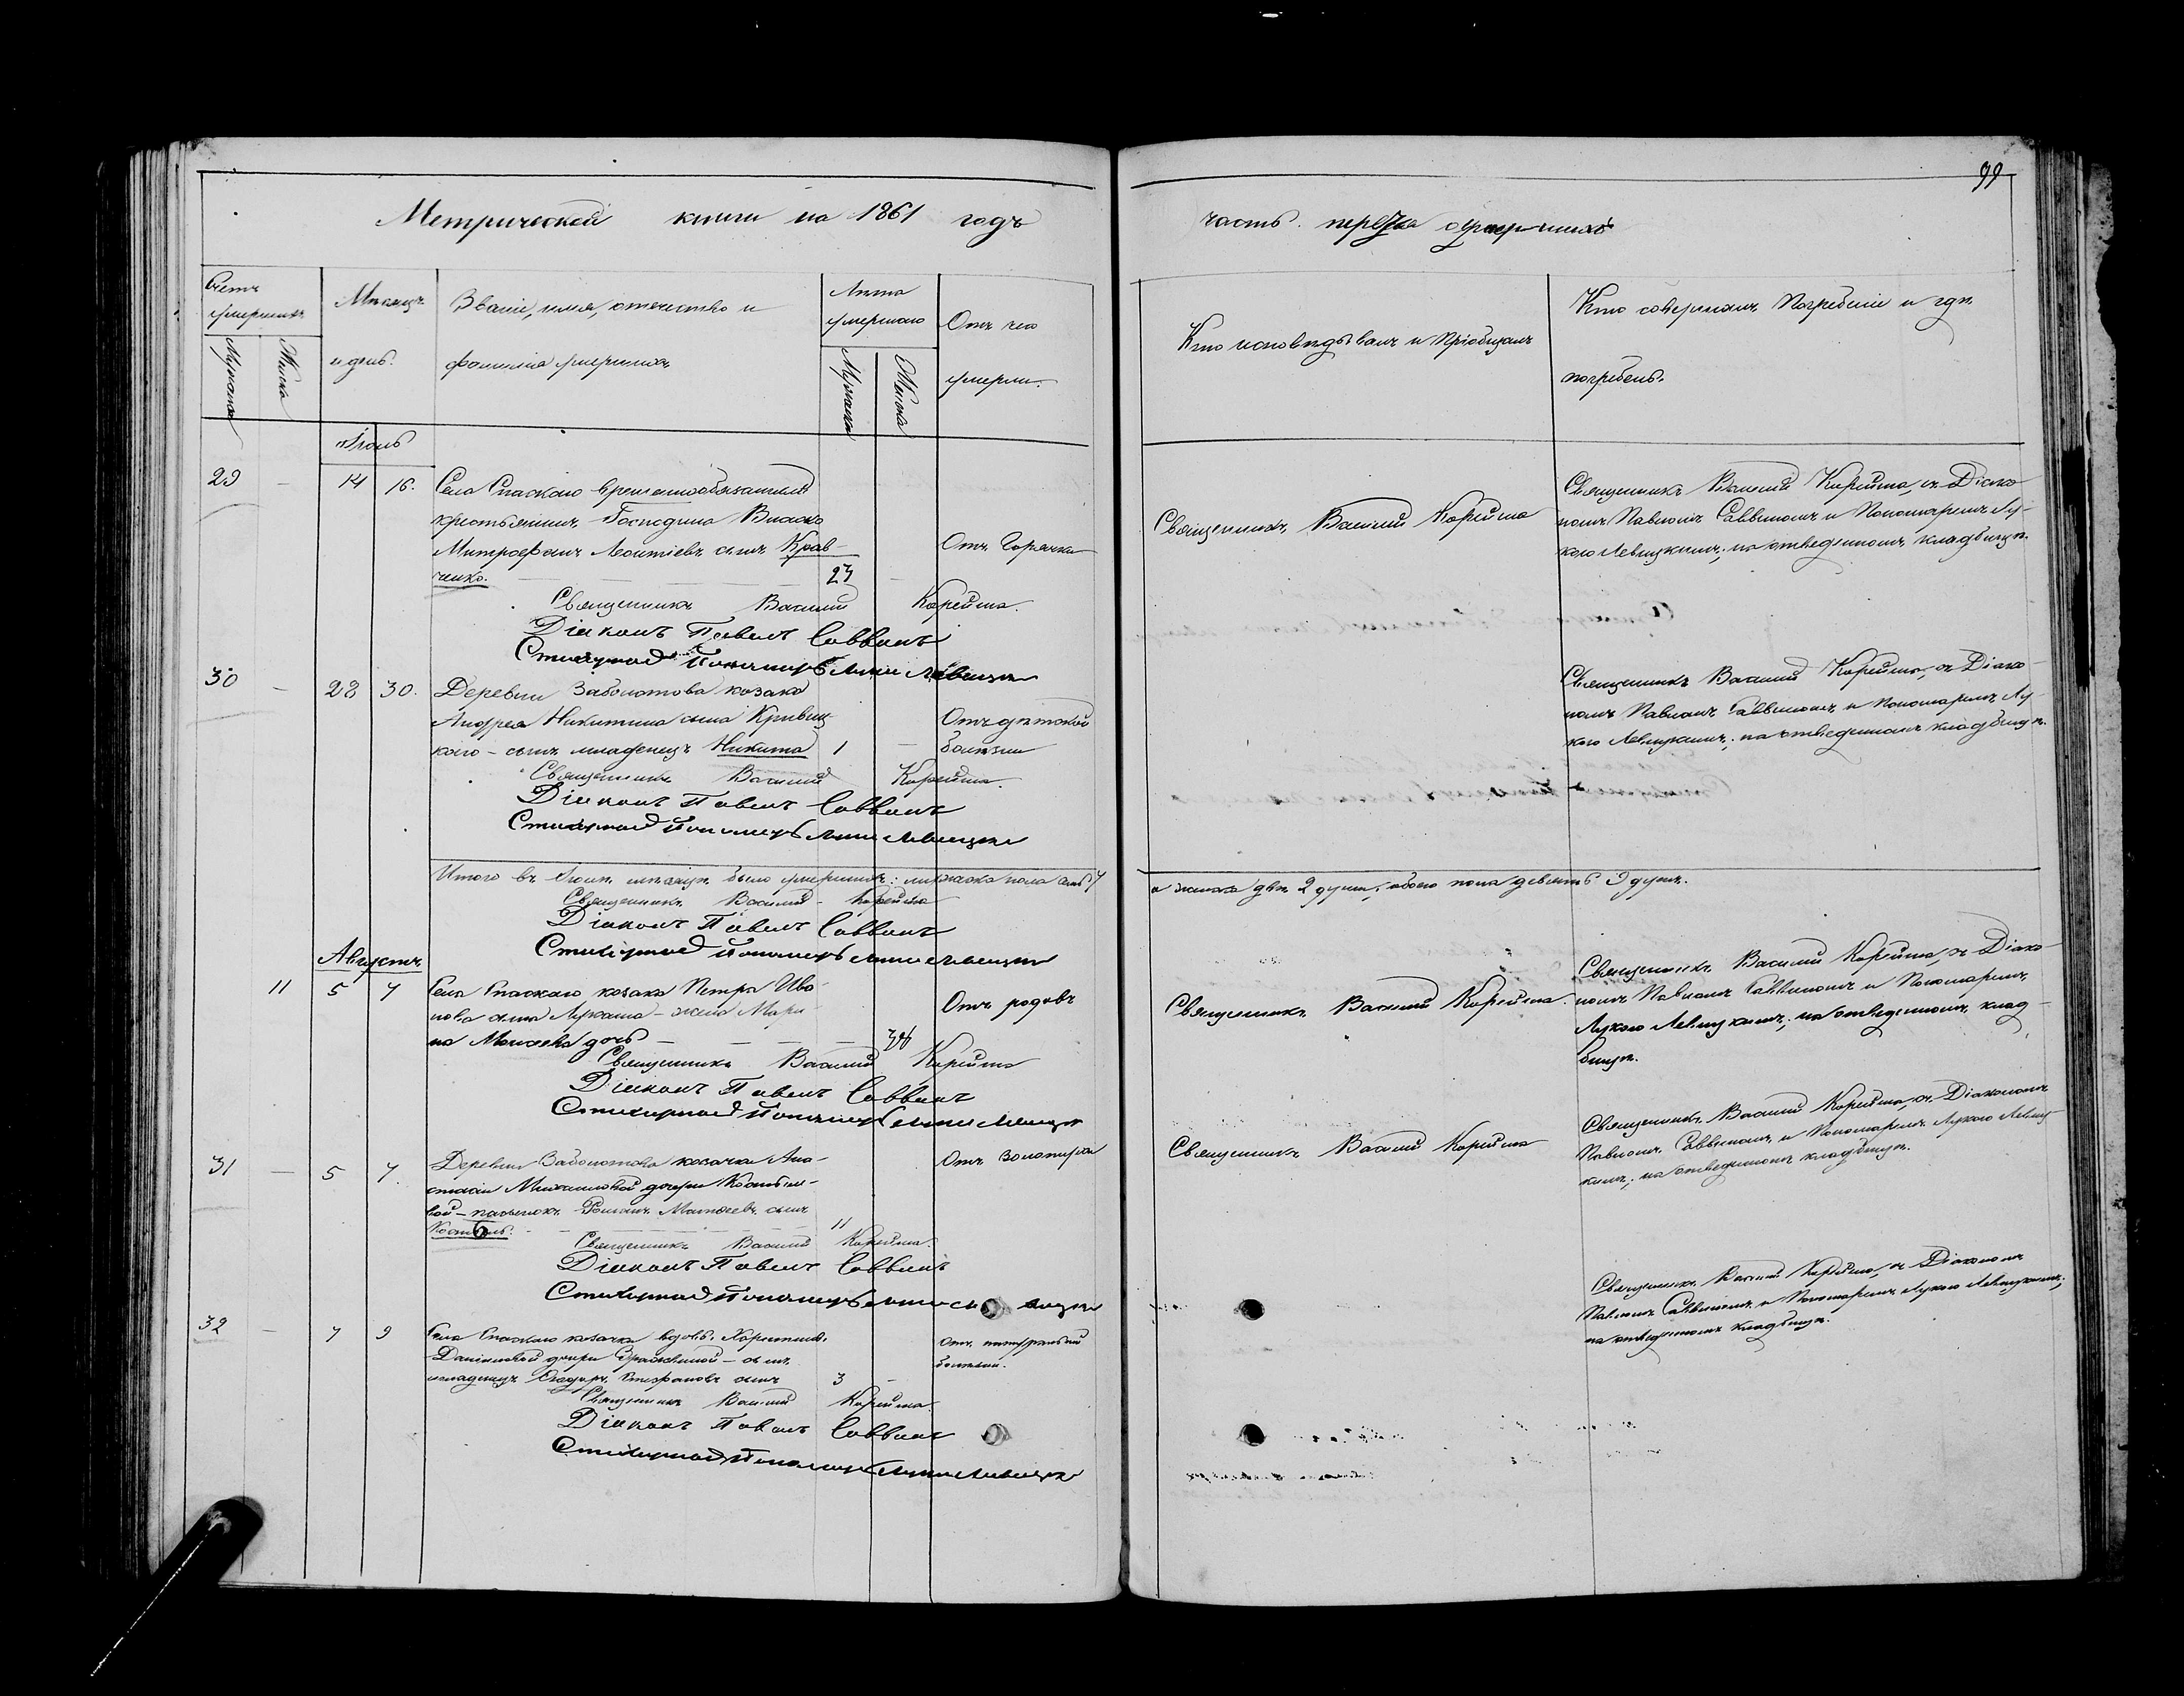 99
Метрической книги на 1861 годъ
часть третья умершихъ
Счетъ умершихъ
Мужеска
Женска
Мѣсяцъ
и день.
Званіе, имя, отечество и
фамилія умершихъ
Лѣта
умершаго
Мужеска
Женска
Отъ чего
умерли.
Кто исповѣдывалъ и пріобщалъ
Кто совершалъ Погребеніе и гдѣ
погребенъ.
Іюль
29 - 14 16.
Села Спаскаго временнообязанный
крестьянинъ Господина
Митрофанъ Леонтіевъ сынъ Крав-
ченко. 23
Отъ Горячки
Священникъ Василій Корейша
Священникъ Василій Корейша, съ Діако-
номъ Павломъ Саввинымъ и Пономаремъ Лу-
кою Левицкимъ; на отведенномъ кладбищѣ.
Священникъ Василій Корейша.
Діаконъ Павелъ Саввинъ
Стихарный Пономарь Лука Левицкій
30 - 28 30.
Деревни Заболотова козака
Андрея Никитина сына Кривиц-
каго - сынъ младенецъ Никита 1 -
Отъ дѣтской
болѣзни
Священникъ Василій Корейша, съ Діако-
номъ Павломъ Саввинымъ и Пономаремъ Лу-
кою Левицкимъ; на отведенномъ кладбищѣ.
Священникъ Василій Корейша.
Діаконъ Павелъ Саввинъ
Стихарный Пономарь Лука Левицкій
Итого въ Іюлѣ мѣсяцѣ было умершихъ: мужеска пола семь 7
а женска двѣ 2 души, обоего пола девять 9 душъ.
Священникъ Василій Корейша
Діаконъ Павелъ Саввинъ
Стихарный Пономарь Лука Левицкій
Августъ
11 5 7
Села Спаскаго козака Петра Ива-
нова сына Лукаша - жена Мари-
на Моисеева дочь
Отъ родовъ
Священникъ Василій Корейша.
Священникъ Василій Корейша, съ Діако-
номъ Павломъ Саввинымъ и Пономаремъ
Лукою Левицкимъ; на отведенномъ клад-
бищѣ.
Священникъ Василій Корейша
Діаконъ Павелъ Саввинъ
Стихарный Пономарь Лука Левицкій
31 - 5 7.
Деревни Заболотова козачки Ана-
стасіи Михайловой дочери
пасынокъ Романъ Матѳеевъ сынъ
11
Отъ Золотухи
Священникъ Василій Корейша
Священникъ Василій Корейша, съ Діакономъ
Павломъ Саввинымъ и Пономаремъ Лукою Левиц-
кимъ; на отведенномъ кладбищѣ.
Священникъ Василій Корейша.
Діаконъ Павелъ Саввинъ
Стихарный Пономарь Лука Левицкій
32 - 7 9
Села Спаскаго козачки вдовы Харитины
Даниловой дочери - сынъ
младенецъ Ѳедоръ Стефановъ сынъ 3 -
Отъ натуральной
болѣзни.
Священникъ Василій Корейша, съ Діакономъ
Павломъ Саввинымъ и Пономаремъ Лукою Левицкимъ;
на отведенномъ кладбищѣ.
Священникъ Василій Корейша.
Діаконъ Павелъ Саввинъ
Стихарный Пономарь Лука Левицкій